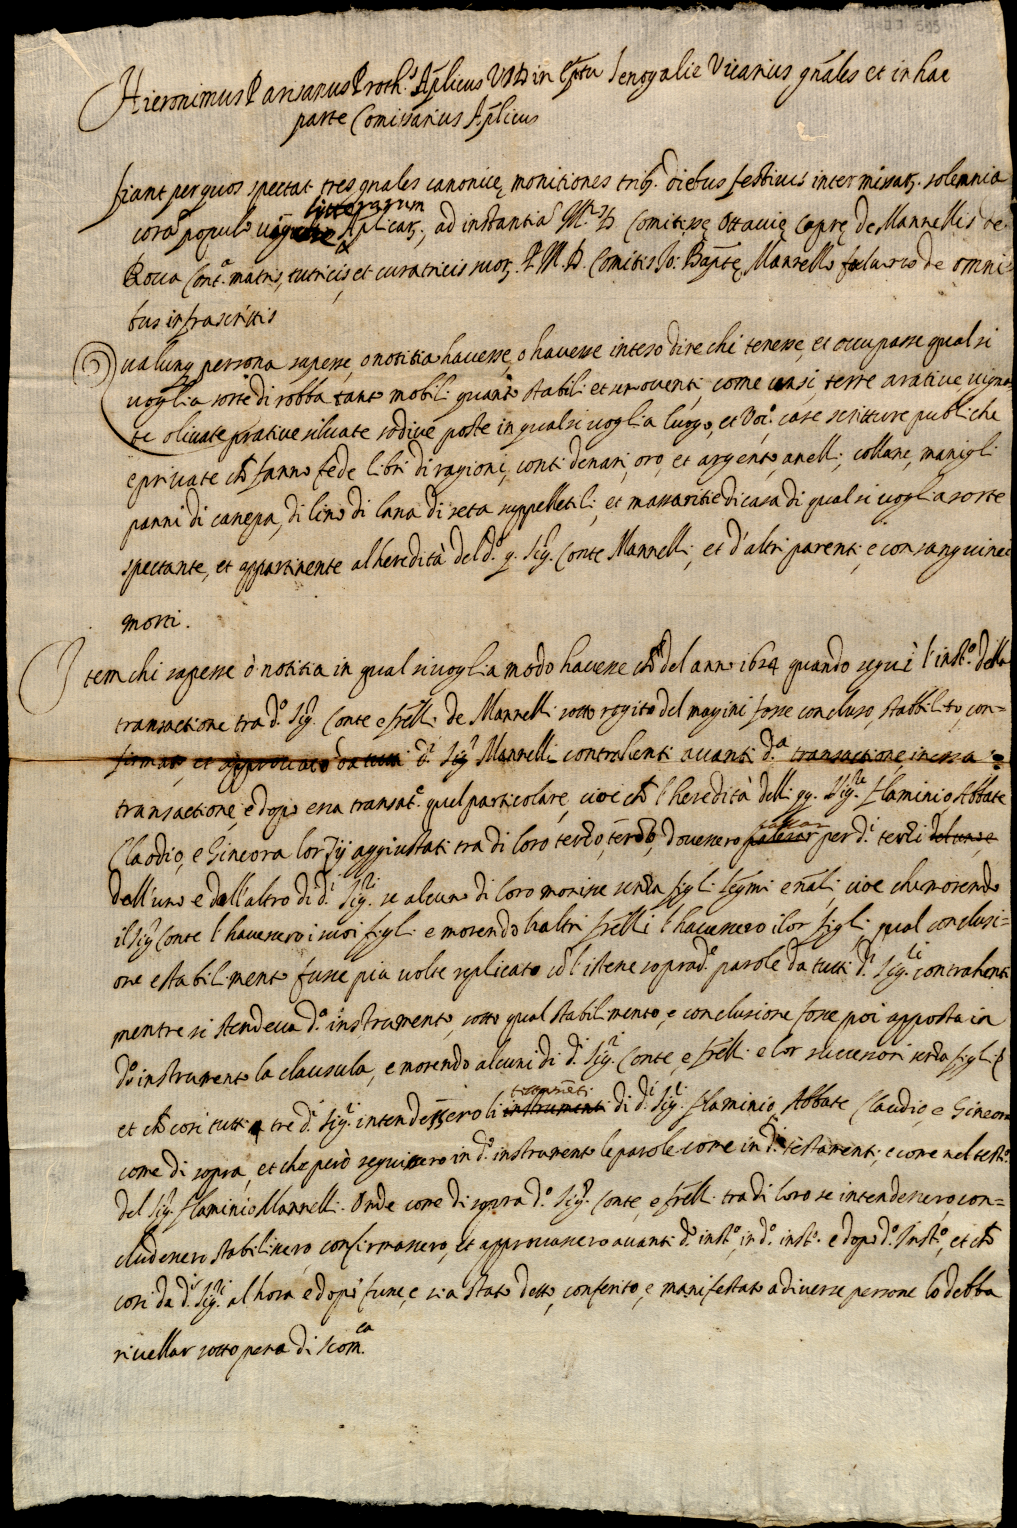 Hieronimus Parisanus Proth.s Ap̃licus V I D in Ep̃tu Senogalie Vicarius gñales et in hac
parte Comissarius Ap̃licus
fiant per quos spectat tres gñales canonicę monitiones trib. diebus festivis intermissar. solemnia
litterarum
corã populo vigore Ap̃licar., ad instantiã Comitissę Ottavię Caprę de Mannellis de
Rocca Cont.e matris, tutricis, et curatricis suor. Comitis Jo: Bap̃tę Mannelli de omni-
bus infrascrittis
Qualunq persona sapesse, o notitia havesse, o havesse inteso dire chi tenesse, et occupasse qualsi
voglia sorte di robba tanto mobili quanto stabili et semoventi, come censi, terre arative, vigna-
te olivate prative silvate sodive poste in qualsivoglia luogo, et case scritture publiche
e private ch̃ fanno fede libri di ragioni, conti denari, oro, et argento, anelli, collane, manigli
panni di canepa, di lino di lana di seta suppelletili, et massaritie di casa di qual si voglia sorte
spectante, et appartinente al heredità del d.o q. Sig. Conte Mannelli, et d'altri parenti, e consanguinei
morti.
Item chi sapesse ò notitia in qual si voglia modo havesse ch̃ del anno 1624 quando seguì l'inst.o della
transactione tra d.o Sig. Conte e frẽlli de Mannelli sotto rogito del magini fosse concluso, stabbilito, con=
firmato, et approvato da tutti d.i Sig.i Mannelli contrahenti avanti d.a transactione, in essa
transactione, e dopo essa transat.e quel particolare, cioè ch̃ l'heredità delli qq. Sig.re Flaminio Abbate
Claodio, e Ginevra lor Zij aggiustati tra di loro terzo, terzo, dovessero per d.i terzi del uno, e
dell'uno e dell'altro di d.i Sig.i se alcuno di loro morisse senza figli legmi e ñali, cioe che morendo
il Sig. Conte l'havessero i suoi figli e morendo l'altri frẽlli l'havessero i lor figli qual conclusi=
one e stabilimento fusse piu volte replicato cõ l'istesse soprad.e parole da tutti d.i Sig.li contrahenti
mentre si stendeva d.o instrumento, sotto qual stabilimento, e conclusione fosse poi apposta in
d.o instrumento la clausula, e morendo alcuni di d.i Sig.i Conte, e frẽlli e lor successori senza figli
testamẽti
et ch̃ cosi tutti e tre d.i Sig.i intendessero li instrumenti di d.i Sig.i Flaminio Abbate Claudio, e Ginevra
come di sopra, et che però seguissero in d.o instrumento le parole come in d.i testamenti, e come nel test.o
del Sig. Flaminio Mannelli. Onde come di sopra d.o Sig. Conte, e frẽlli tra di loro se intendessero, con=
cludessero stabilissero, confirmassero, et approvassero avanti d.o inst.o, in d.o inst.o e dopo d.o Inst.o, et ch̃
cosi da d.i Sig.i al hora e dopò fusse, e sia stato detto, conferito, e manifestato a diverse persone lo debba
rivellar sotto pena di scom.ca